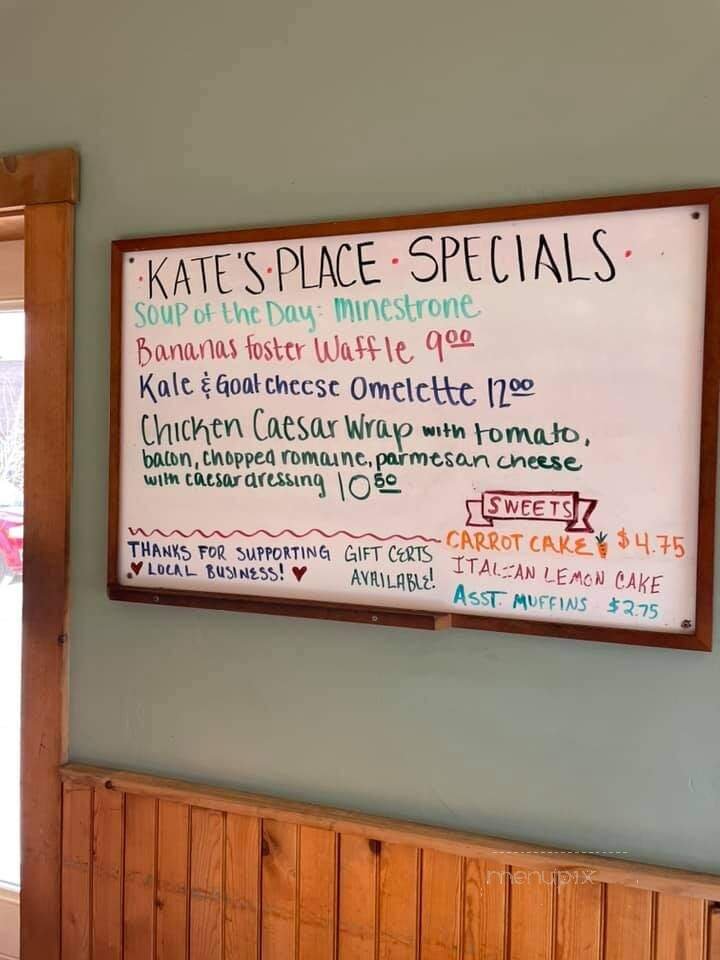 ·KATE'S·PLACE·SPECIALS·
SOUP of the Day: Minestrone
Bananas foster Waffle 9⁰⁰
Kale & Goat cheese Omelette 12⁰⁰
Chicken Caesar Wrap with tomato,
bacon, chopped romaine, parmesan cheese
with caesar dressing 10⁵⁰
SWEETS
CARROT CAKE $4.75
ITALIAN LEMON CAKE
ASST. MUFFINS $2.75
THANKS FOR SUPPORTING
♥ LOCAL BUSINESS! ♥
GIFT CERTS
AVAILABLE!
menupix